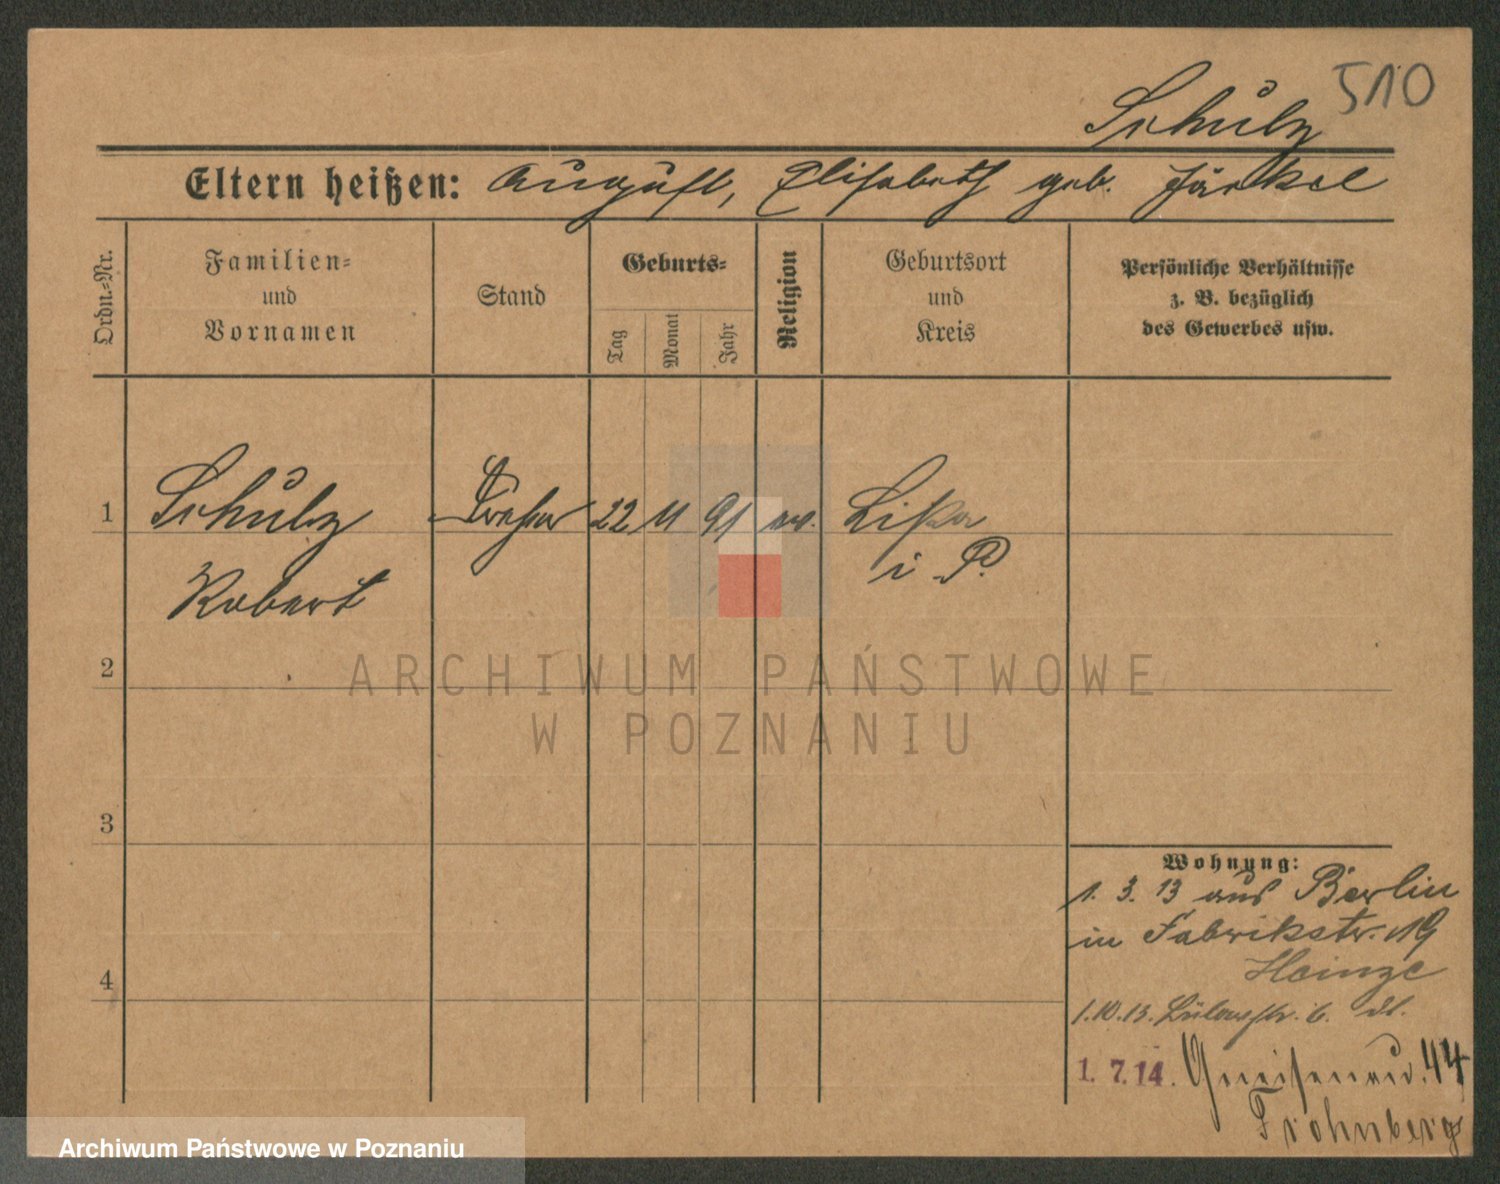 510
Schulz
Eltern heißen: August, Elisabeth geb. Jäckel
Ordn.-Nr.
Familien-
und
Vornamen
Stand
Geburts-
Tag
Monat
Jahr
Religion
Geburtsort
und
Kreis
Persönliche Verhältnisse
z. B. bezüglich
des Gewerbes usw.
1
Schulz
22 11 91 ev. Lissa
Robert
i P.
2
ARCHIWUM PAŃSTWOWE
W POZNANIU
3
4
Wohnung:
1. 3. 13 aus Berlin
in Fabrikstr. 19
Heinze
1.10.13.
1. 7. 14. Gneisenau. 44
Frohnberg
Archiwum Państwowe w Poznaniu